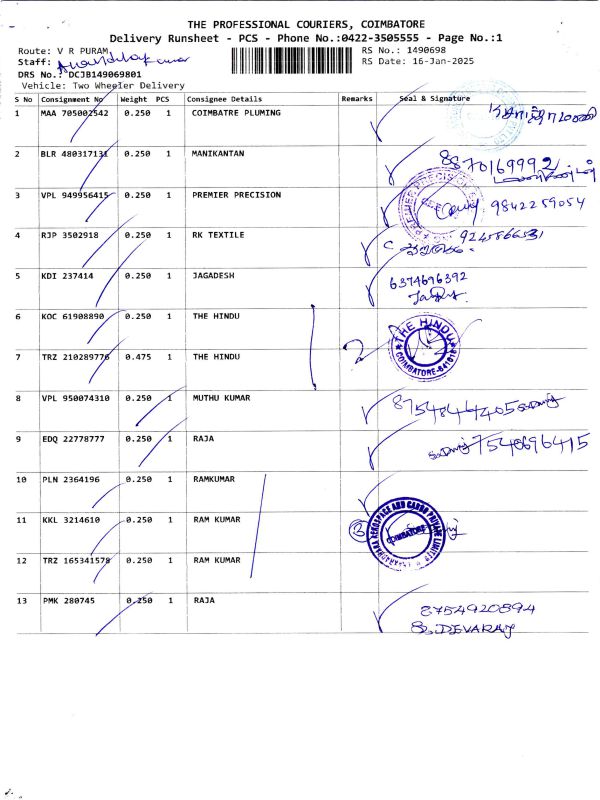 THE PROFESSIONAL COURIERS, COIMBATORE
Delivery Runsheet - PCS - Phone No.:0422-3505555 - Page No.:1
Route: V R PURAM RS No.: 1490698
Staff: RS Date: 16-Jan-2025
DRS No. DCJB149069801
Vehicle: Two Wheeler Delivery
S No Consignment No Weight PCS Consignee Details Remarks Seal & Signature
1 MAA 705002542 0.250 1 COIMBATRE PLUMING
2 BLR 480317131 0.250 1 MANIKANTAN
3 VPL 949956415 0.250 1 PREMIER PRECISION 9842259054
4 RJP 3502918 0.250 1 RK TEXTILE
5 KDI 237414 0.250 1 JAGADESH 6374696392
6 KOC 61908890 0.250 1 THE HINDU
THE HINDU
COIMBATORE-641018
7 TRZ 210289776 0.475 1 THE HINDU 2
8 VPL 950074310 0.250 1 MUTHU KUMAR 8754846405
9 EDQ 22778777 0.250 1 RAJA 7548696415
10 PLN 2364196 0.250 1 RAMKUMAR
11 KKL 3214610 0.250 1 RAM KUMAR 3
COIMBATORE
12 TRZ 165341578 0.250 1 RAM KUMAR
13 PMK 280745 0.250 1 RAJA 8754920894
DEVARAJ